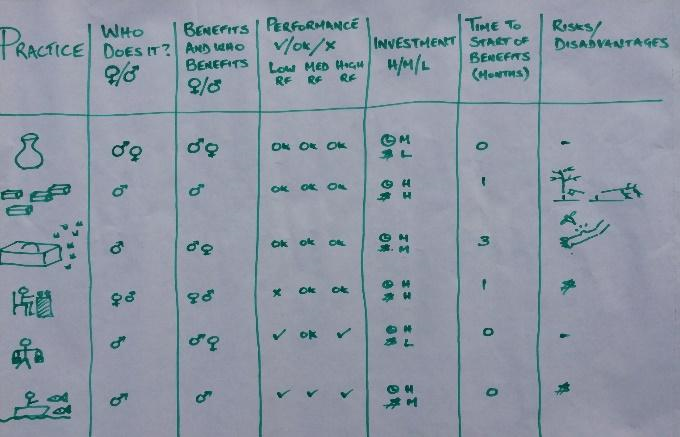 PRACTICE
WHO
DOES IT?
♀/♂
BENEFITS
AND WHO
BENEFITS
♀/♂
PERFORMANCE
✓/OK/X
LOW MED HIGH
RF RF RF
INVESTMENT
H/M/L
TIME TO
START OF
BENEFITS
(MONTHS)
RISKS/
DISADVANTAGES
♂♀ ♂♀ OK OK OK M 0 -
L
♂ ♂ OK OK OK H 1
H
♂ ♂♀ OK OK OK M 3
M
♀♂ ♀♂ X OK OK H 1
H
♂ ♂♀ ✓ OK ✓ H 0 -
L
♂ ♂ ✓ ✓ ✓ H 0
M